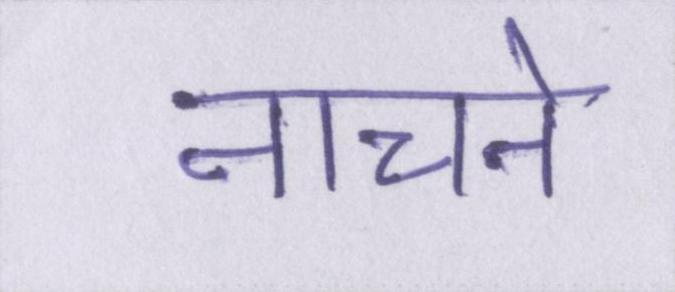 नाचने